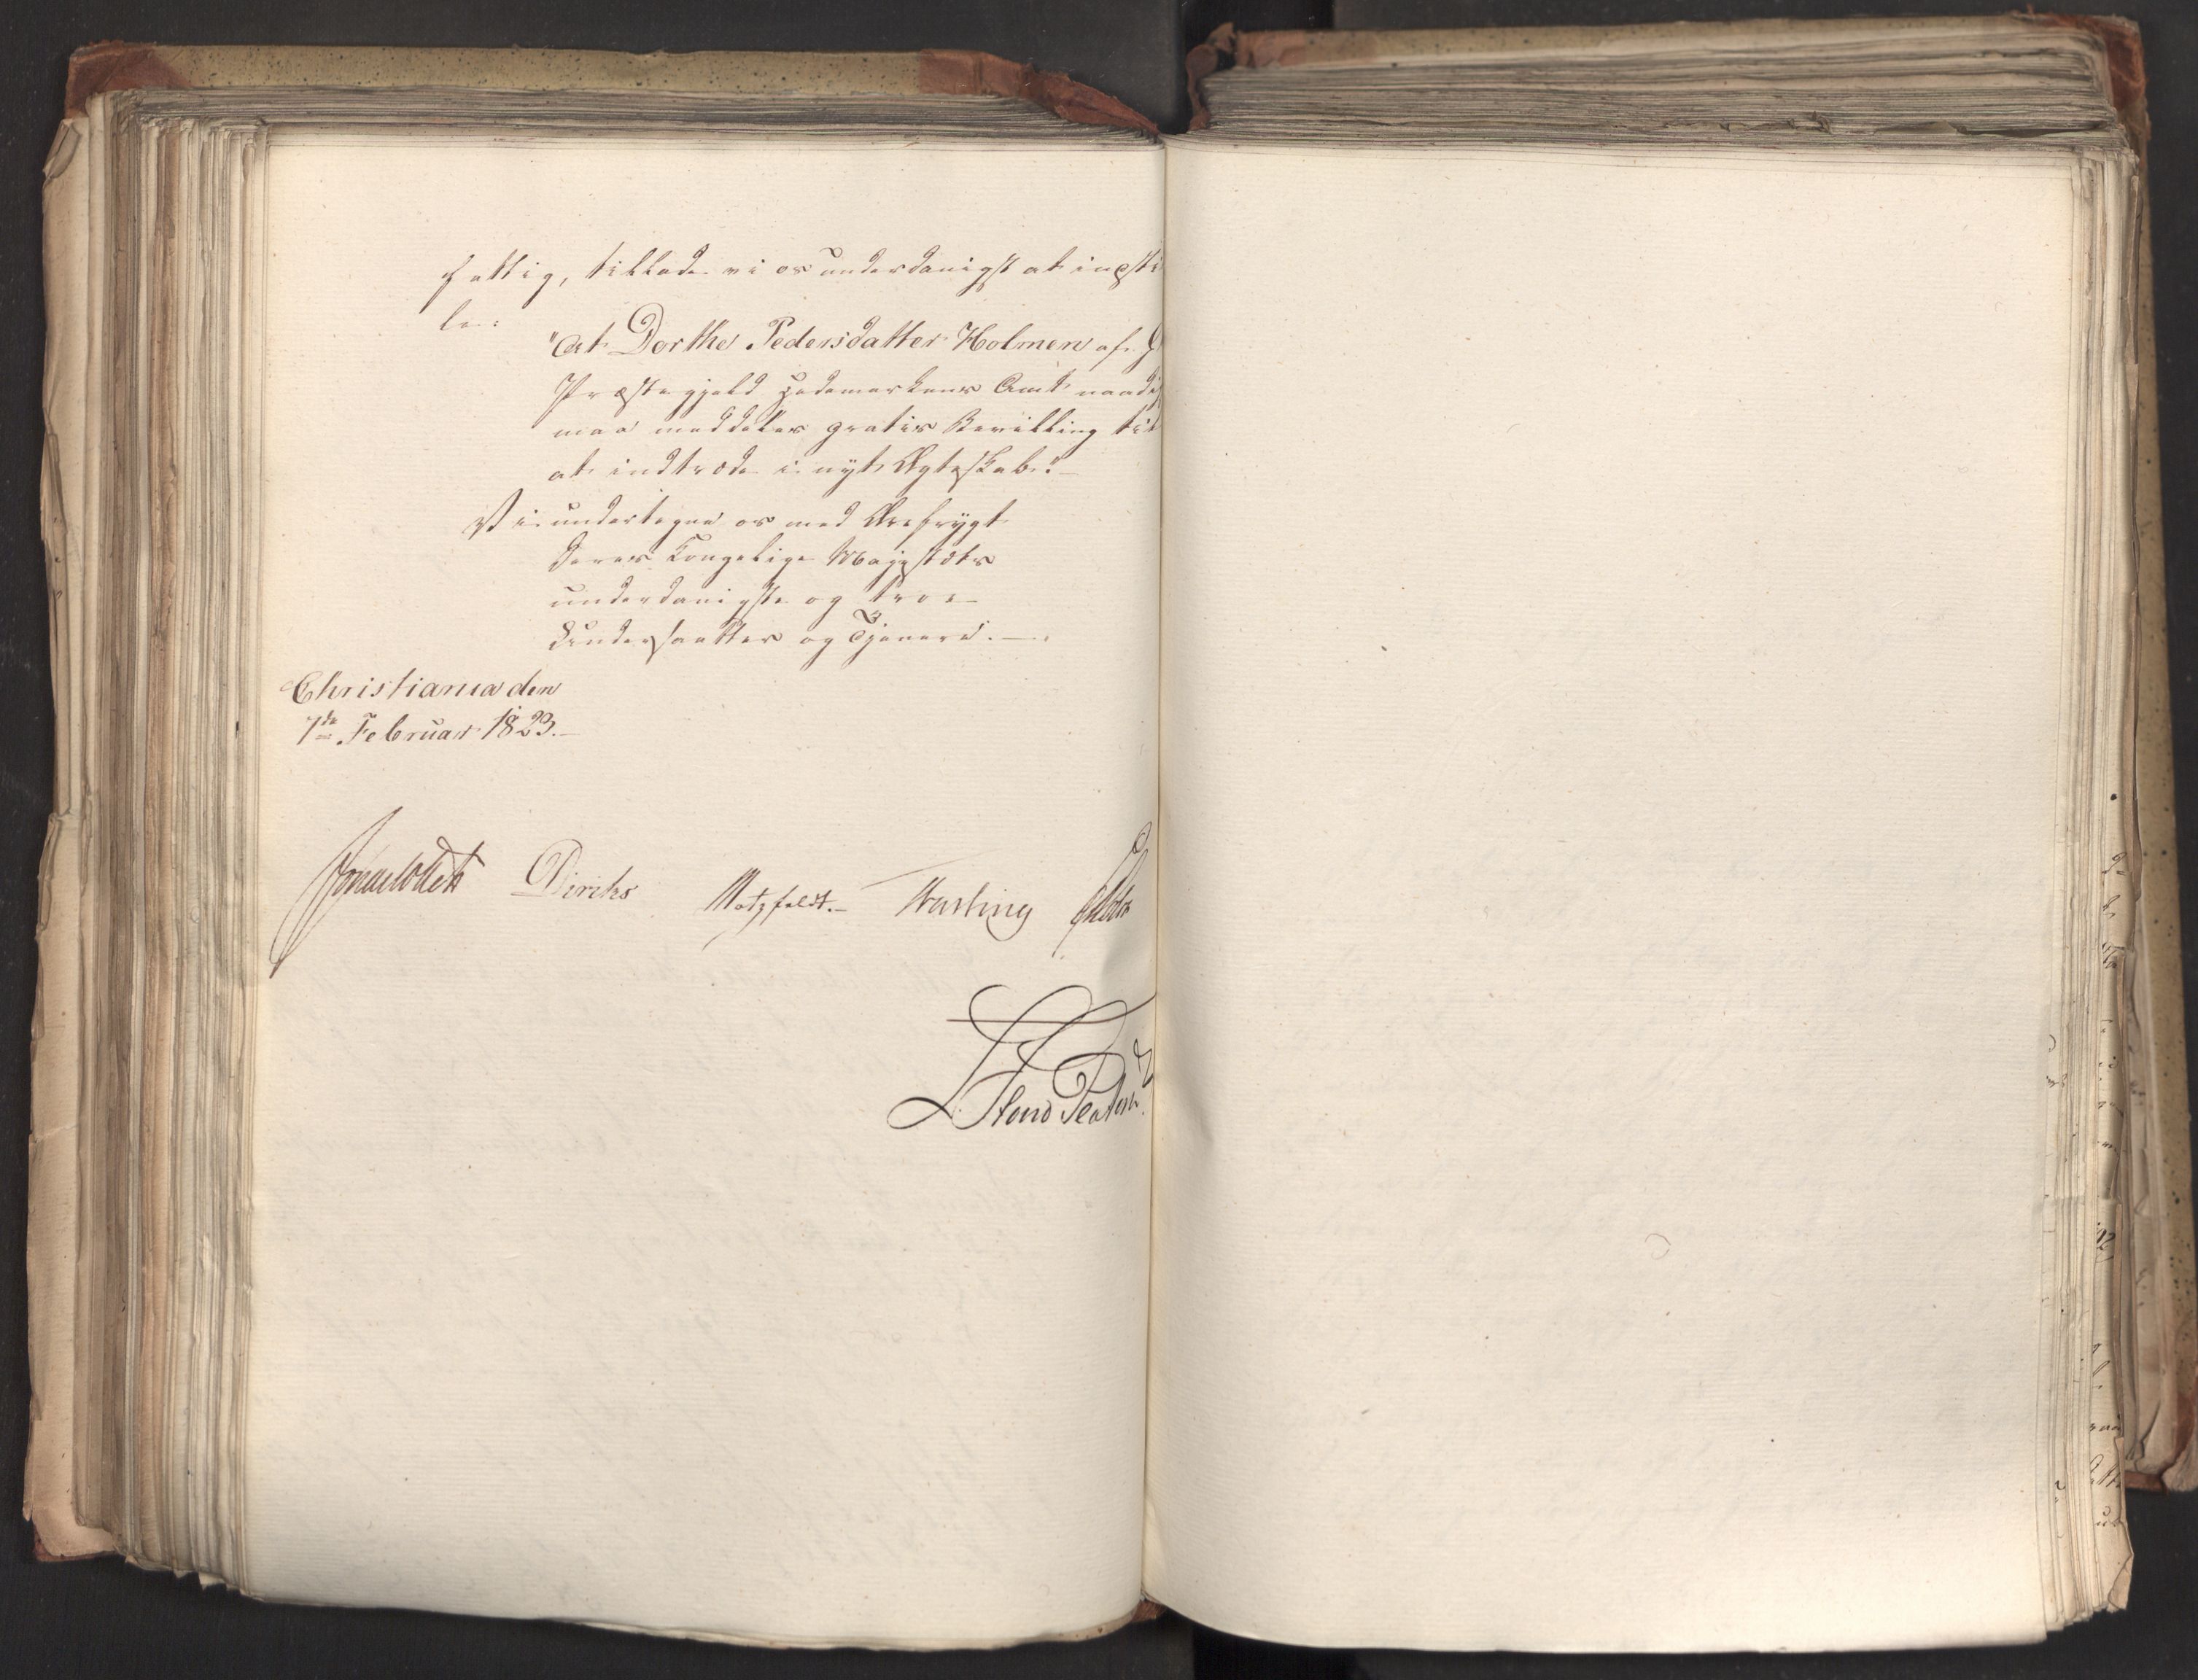 fattig, tillade vi os underdanigst at indstil
le:
"At Dorthe Pedersdatter Holmen af
Præstegjeld Hedemarkens Amt naadigst
maa meddeles gratis Bevilling til
at indtræde i nyt Ægteskab."
Vi undertegne os med Ærefrygt
Deres Kongelige Majestæts
underdanigste og troe
Undersaatter og Tjenere.
Christiania den
7de Februar 1823.
Jonas Collett Diriks Motzfeldt. Krefting